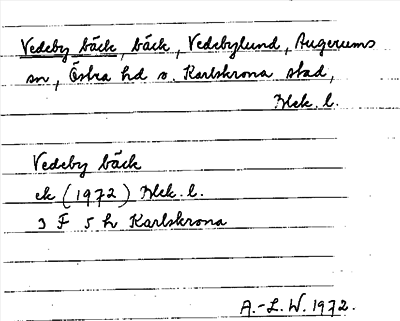 Vedeby bäck, bäck, Vedebylund, Augerums
sn, Östra hd o. Karlskrona stad,
Blek. l.
Vedeby bäck
ek (1972) Blek. l.
3 F 5 h Karlskrona
A.-L. W. 1972.